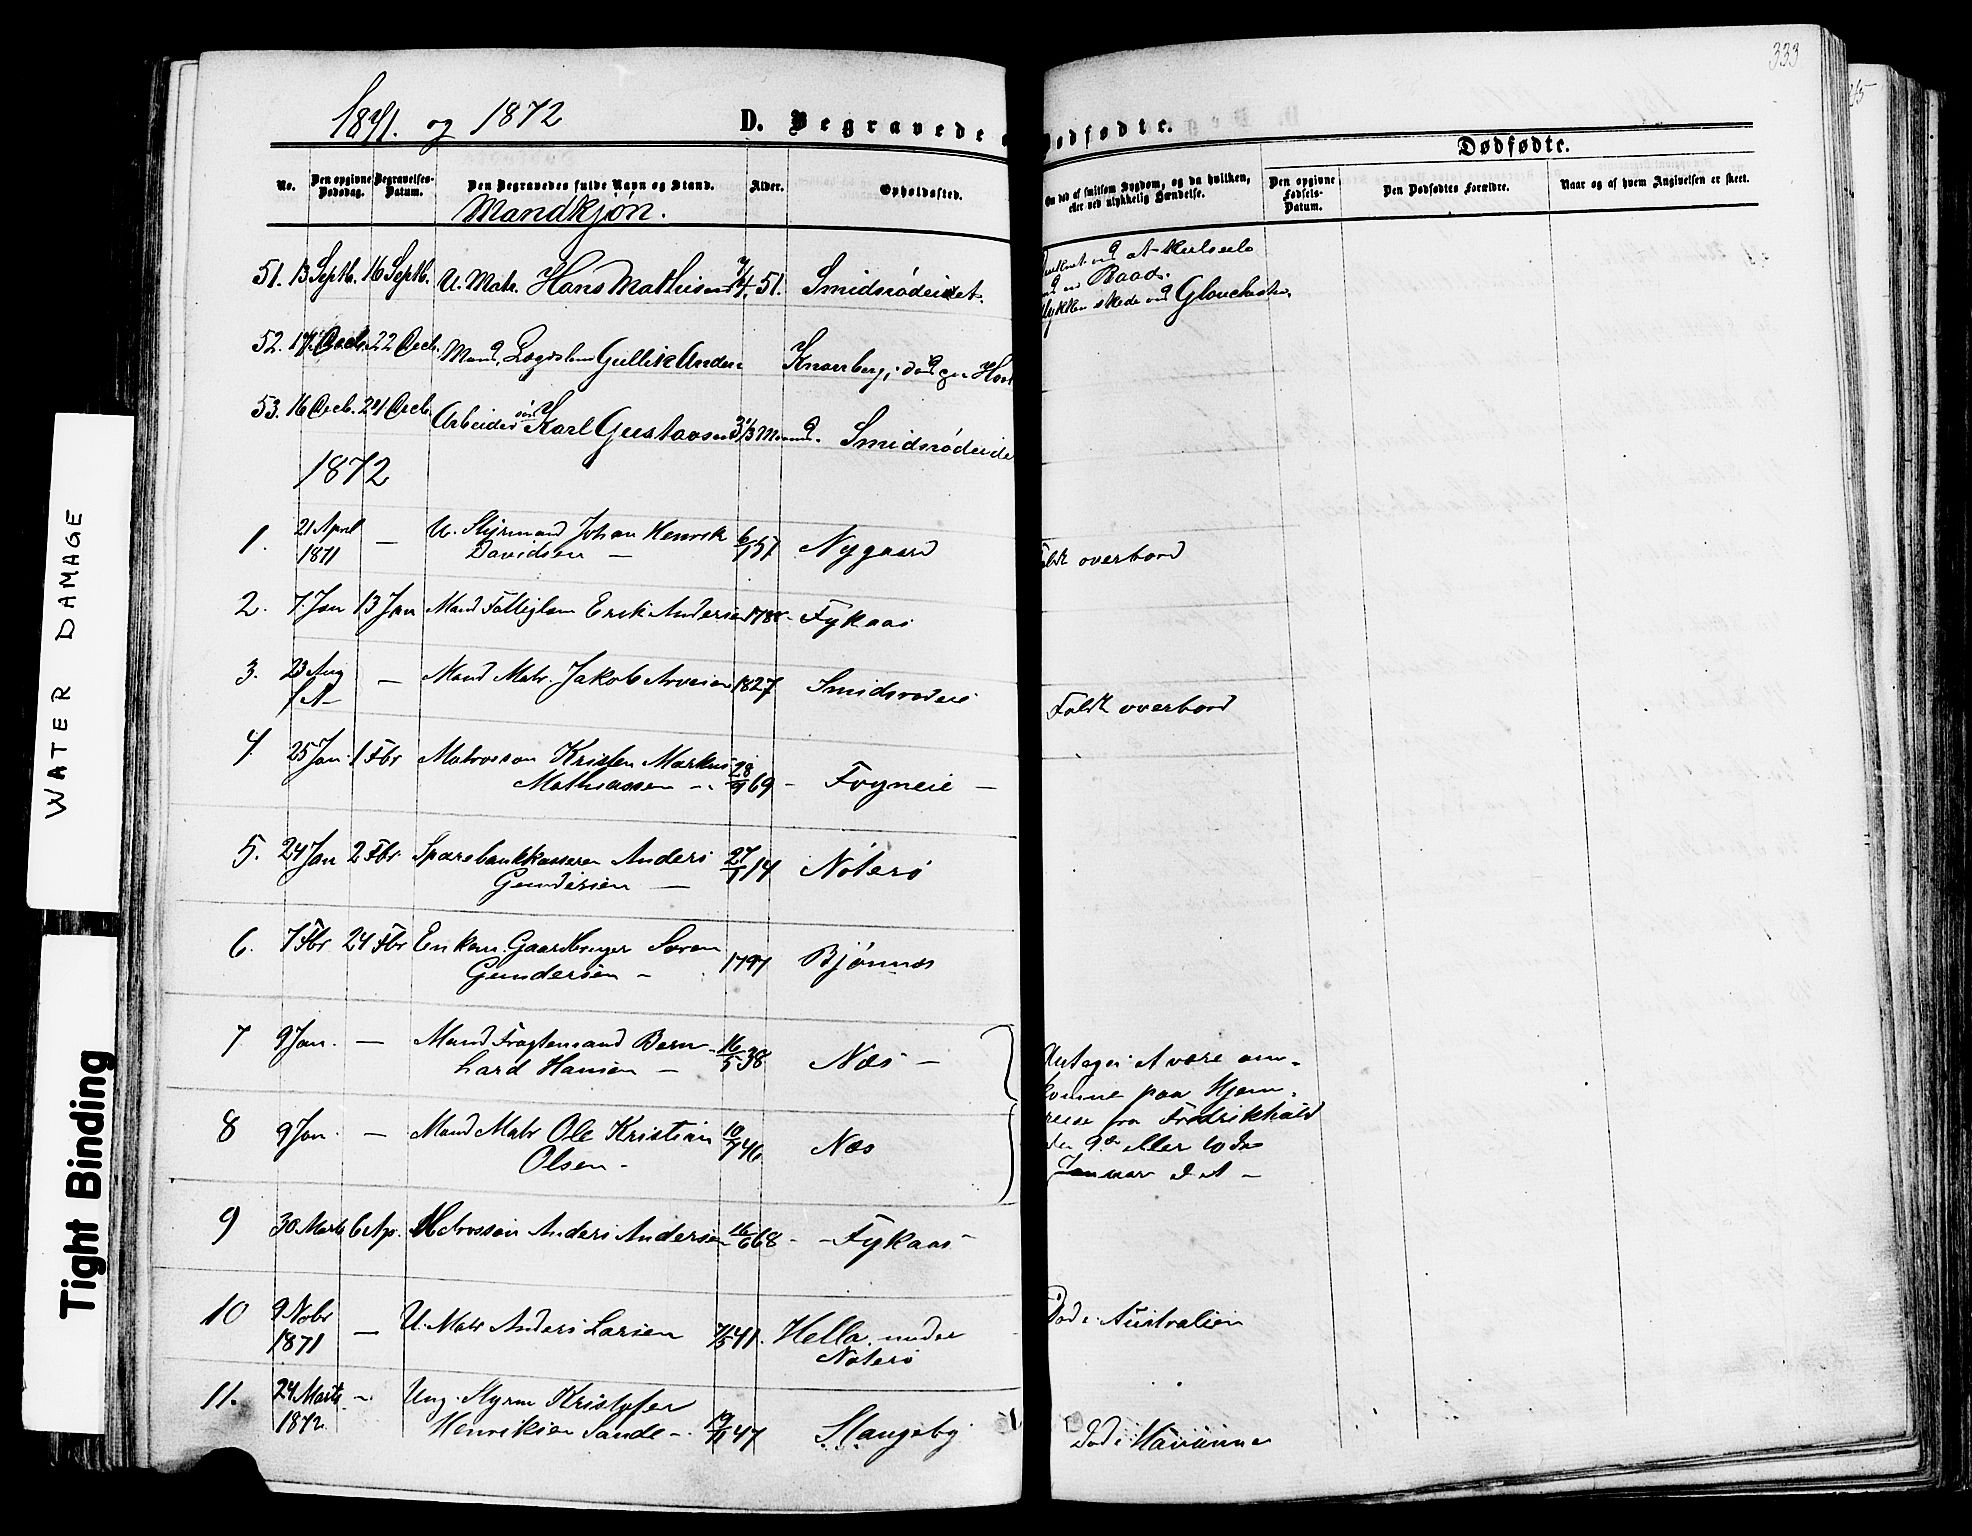 333
1871. og 1872
D. Begravede o Dødfødte.
Dødfødte.
No.
Den opgivne Dødsdag.
Begravelses-Datum.
Den Begravedes fulde Navn og Stand.
Alder.
Opholdssted.
Om død af smitsom Sygdom, og da hvilken, eller ved ulykkelig Hændelse.
Den opgivne Fødsels-Datum.
Den Dødfødtes Forældre.
Naar og af hvem Angivelsen er skeet.
Mandkjøn.
51. 13 Septb. 16 Septb. U. Matr. Hans Mathisen 51. Smidsrødeiet.
Baad.
skede ved Glouchester
52. 17 Decb. 22 Decb. Mand, Lægdslem Gullik Anders Knarberg, død
53. 16 Decb. 24 Decb. Arbeider søn Karl Gustavsen 3 1/3 Maaned. Smidsrødeie
1872
1. 21 April 1871 — U. Styrmand Johan Henrik 6/1 57 Nygaard
Davidsen —
Faldt overbord
2. 7. Jan 13 Jan Mand Fattiglem Erik Andersen 1788 - Fykaas
3. 23 Aug — Mand Matr. Jakob Arvesen 1827 Smidsrødeie
f A —
Faldt overbord
4. 25 Jan. 1 Fbr Matrossøn Kristen Markus 28/9 69 - Frøyneie —
Mathiassen —
5. 24 Jan 2 Fbr. Sparebankkasserer Anders 27/1 14 Nøterø
Gundersen —
6. 7 Fbr 24 Fbr Enkem. Gaardbruger Søren 1797 Bjønnes
Gundersen —
7 9 Jan. — Mand Fragtemand Bern- 16/5 38 Næs —
hard Hansen —
Antages at være om-
komne paa Hjem-
reise fra Fredrikhald
den 9de eller 10de
Januar d. A —
8 9 Jan. — Mand Matr Ole Kristian 10/7 46. Næs
Olsen -
9 30 Marts 6 Ap. Matrossøn Anders Andersen 16/6 68 - - Fykaas -
10 9 Nobr 1871 — U. Matr Anders Larsen 7/5 41. Hella under
Nøterø
Død i Australien
11. 24 Marts 1872 - Ung. Styrm Kristofer
Henriksen Sande - 19/11 47 Stangeby
Død i Havanna
WATER DAMAGE
Tight Binding